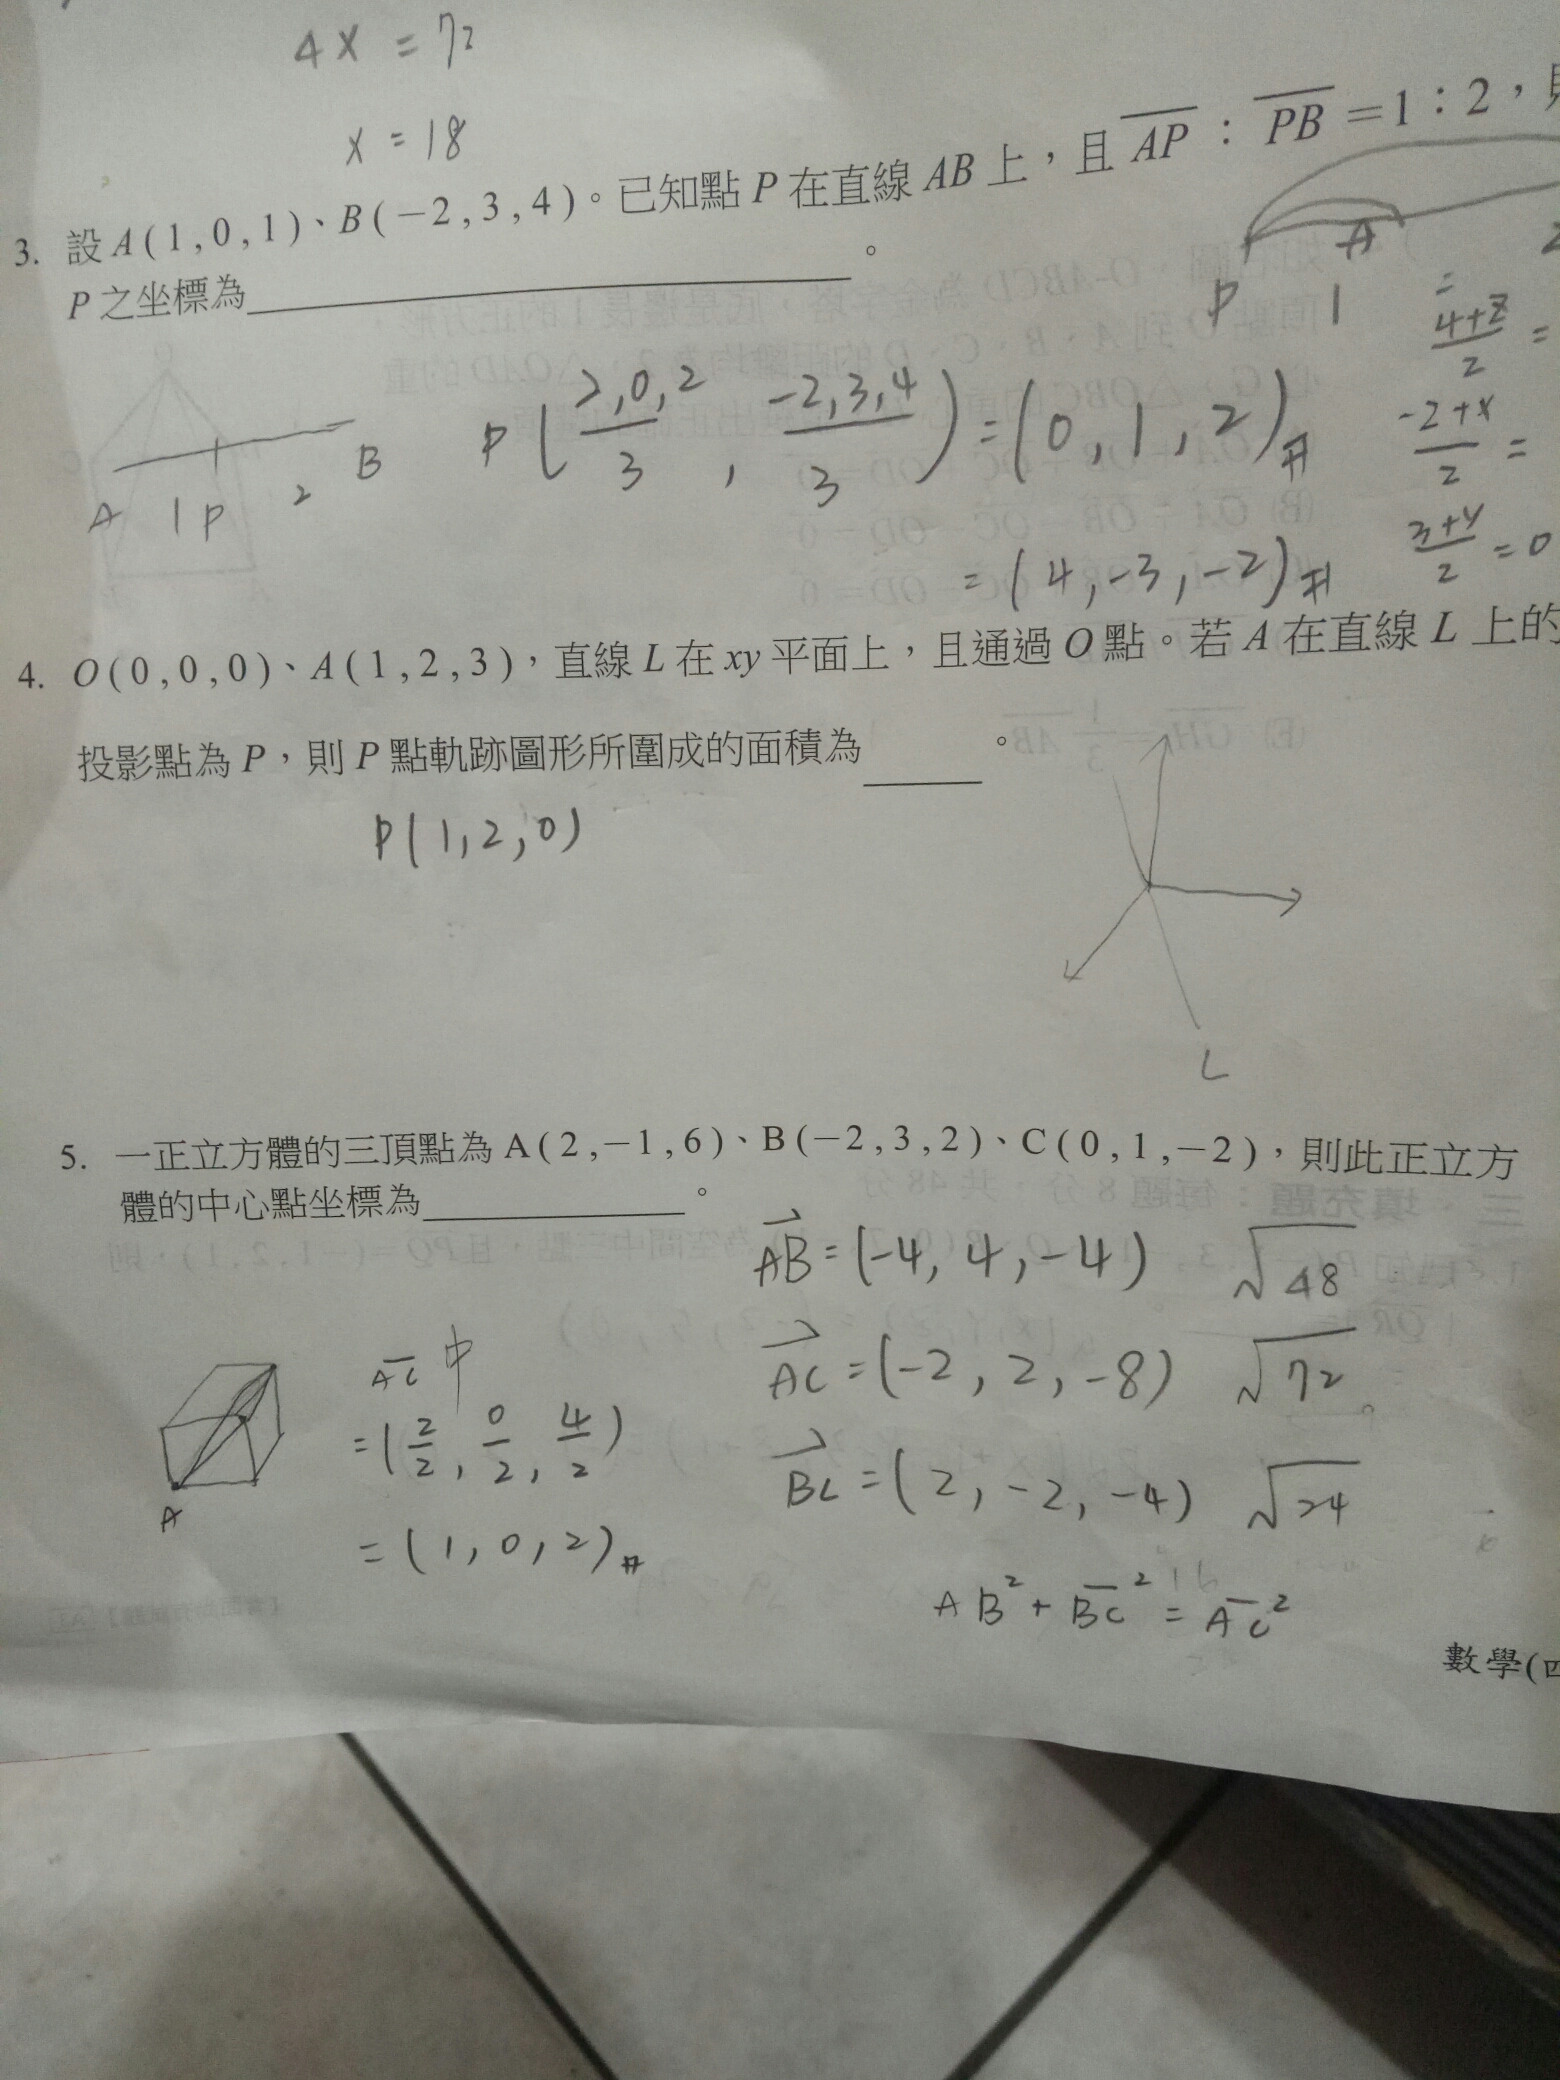 4x = 72
x = 18
3. 設 A(1,0,1)、B(−2,3,4)。已知點 P 在直線 AB 上，且 \overline{AP} : \overline{PB} = 1 : 2，則
P 之坐標為＿＿＿＿＿＿＿＿。
P A
1 2
A 1 P 2 B
P(\frac{2,0,2}{3}, \frac{-2,3,4}{3}) = (0,1,2)#
= (4,-3,-2)#
\frac{4+z}{2} =
\frac{-2+x}{2} =
\frac{3+y}{2} = 0
4. O(0,0,0)、A(1,2,3)，直線 L 在 xy 平面上，且通過 O 點。若 A 在直線 L 上的
投影點為 P，則 P 點軌跡圖形所圍成的面積為＿＿＿。
P(1,2,0)
L
5. 一正立方體的三頂點為 A(2,−1,6)、B(−2,3,2)、C(0,1,−2)，則此正立方
體的中心點坐標為＿＿＿＿＿＿。
\overrightarrow{AB} = (-4, 4, -4) √48
\overrightarrow{AC} = (-2, 2, -8) √72
\overrightarrow{BC} = (2, -2, -4) √24
AB² + \overline{BC}² = \overline{AC}²
A
\overline{AC} 中
= (\frac{2}{2}, \frac{0}{2}, \frac{4}{2})
= (1, 0, 2)#
數學(四